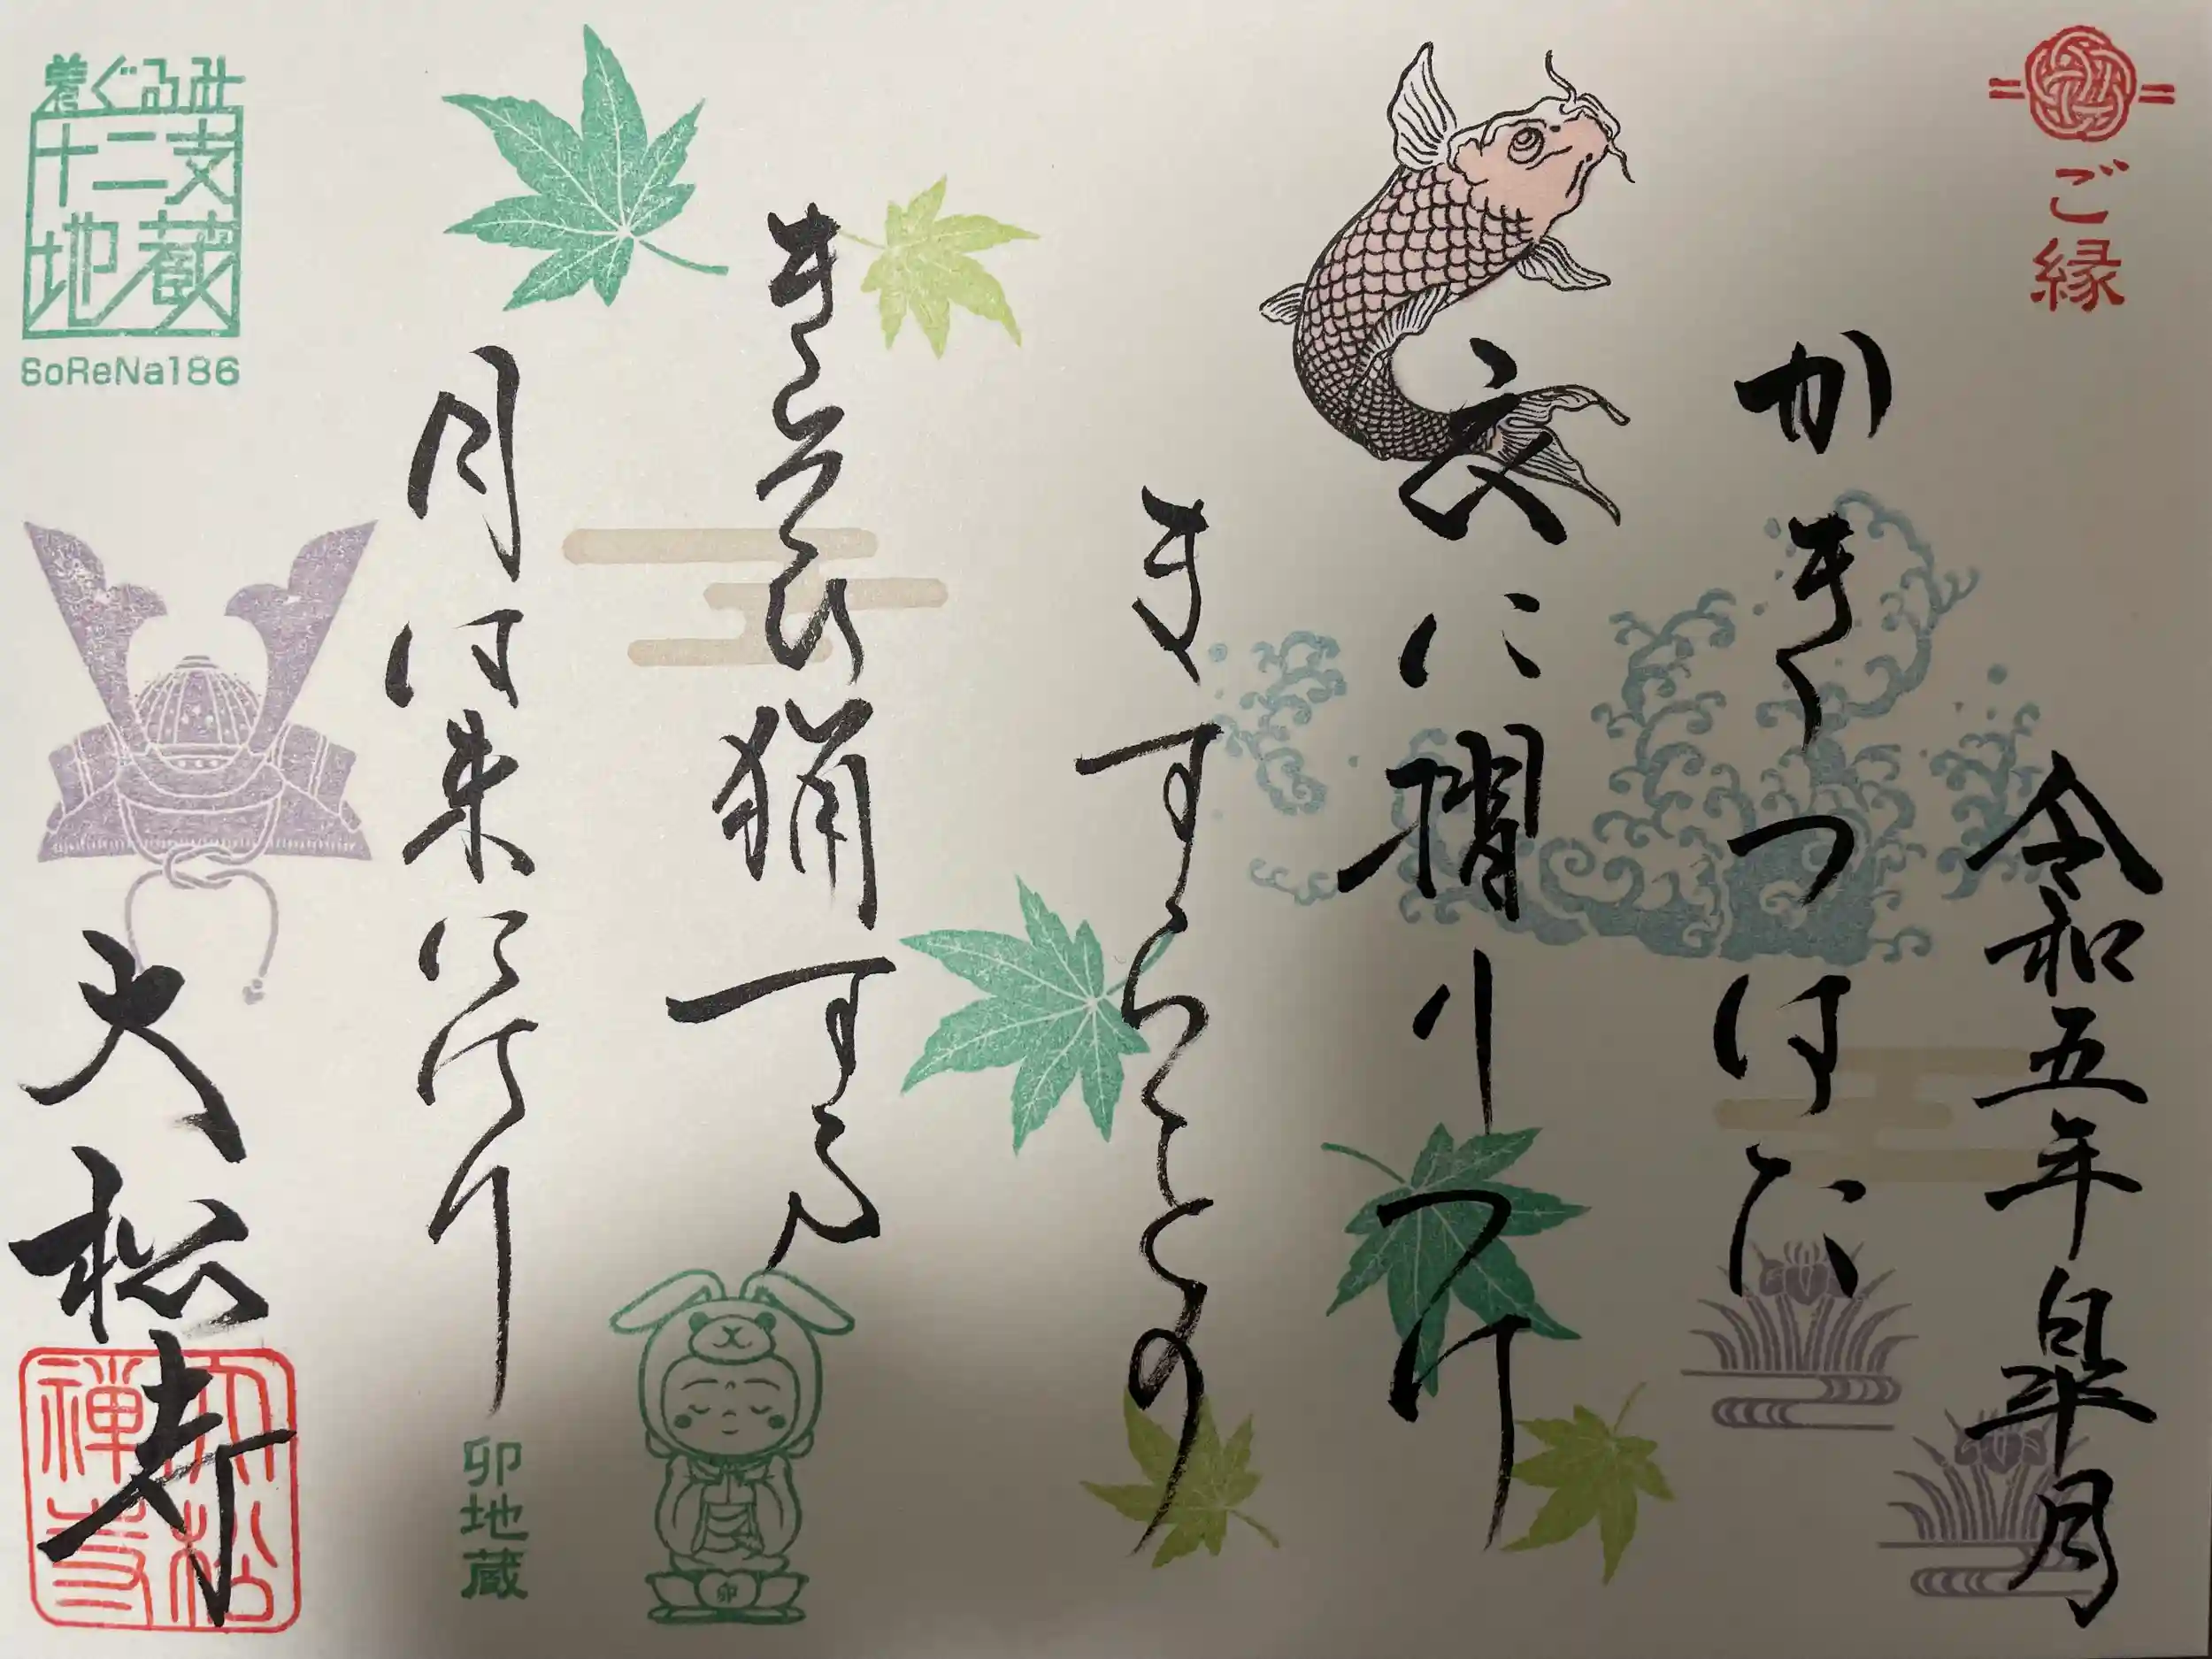 ご縁
令和五年皐月
かきつはた
衣に摺りつけ
ますらをの
きそひ猟する
月は来にけり
卯地蔵
卯
着ぐるみ
十二支
地蔵
SoReNa186
大松寺
大松
禅寺